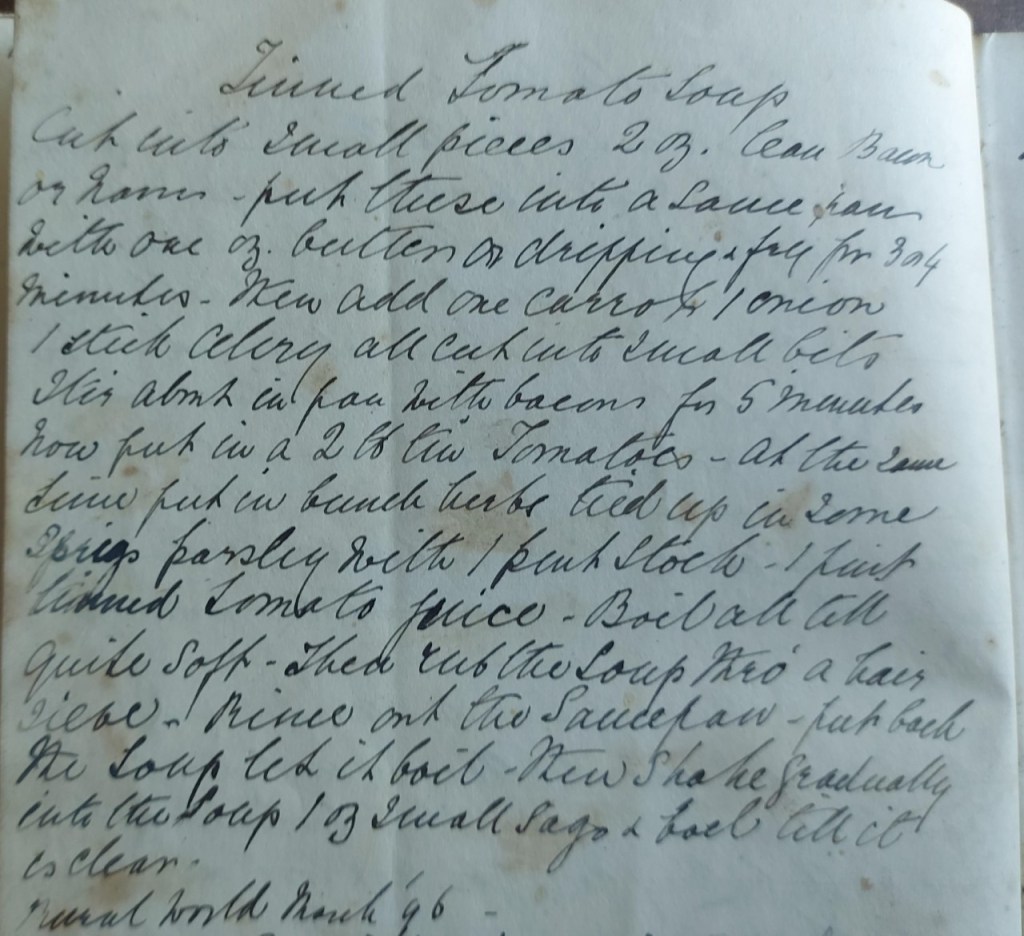 Tinned Tomato Soup
Cut into small pieces 2 oz. lean Bacon
or ham - put these into a sauce pan
with one oz. butter or dripping & fry for 3 or 4
minutes - then add one carrot 1 onion
1 stick celery all cut into small bits
Stir about in pan with bacon for 5 minutes
Now put in a 2 lb tin Tomatoes - at the same
time put in bunch herbs tied up in some
sprigs parsley with 1 pint stock - 1 pint
tinned tomato juice - Boil all till
quite soft - Then rub the soup thro' a hair
sieve - Rince out the Saucepan - put back
the soup let it boil - then shake gradually
into the soup 1 oz small sago & boil till it
is clear -
Rural World March '96 -